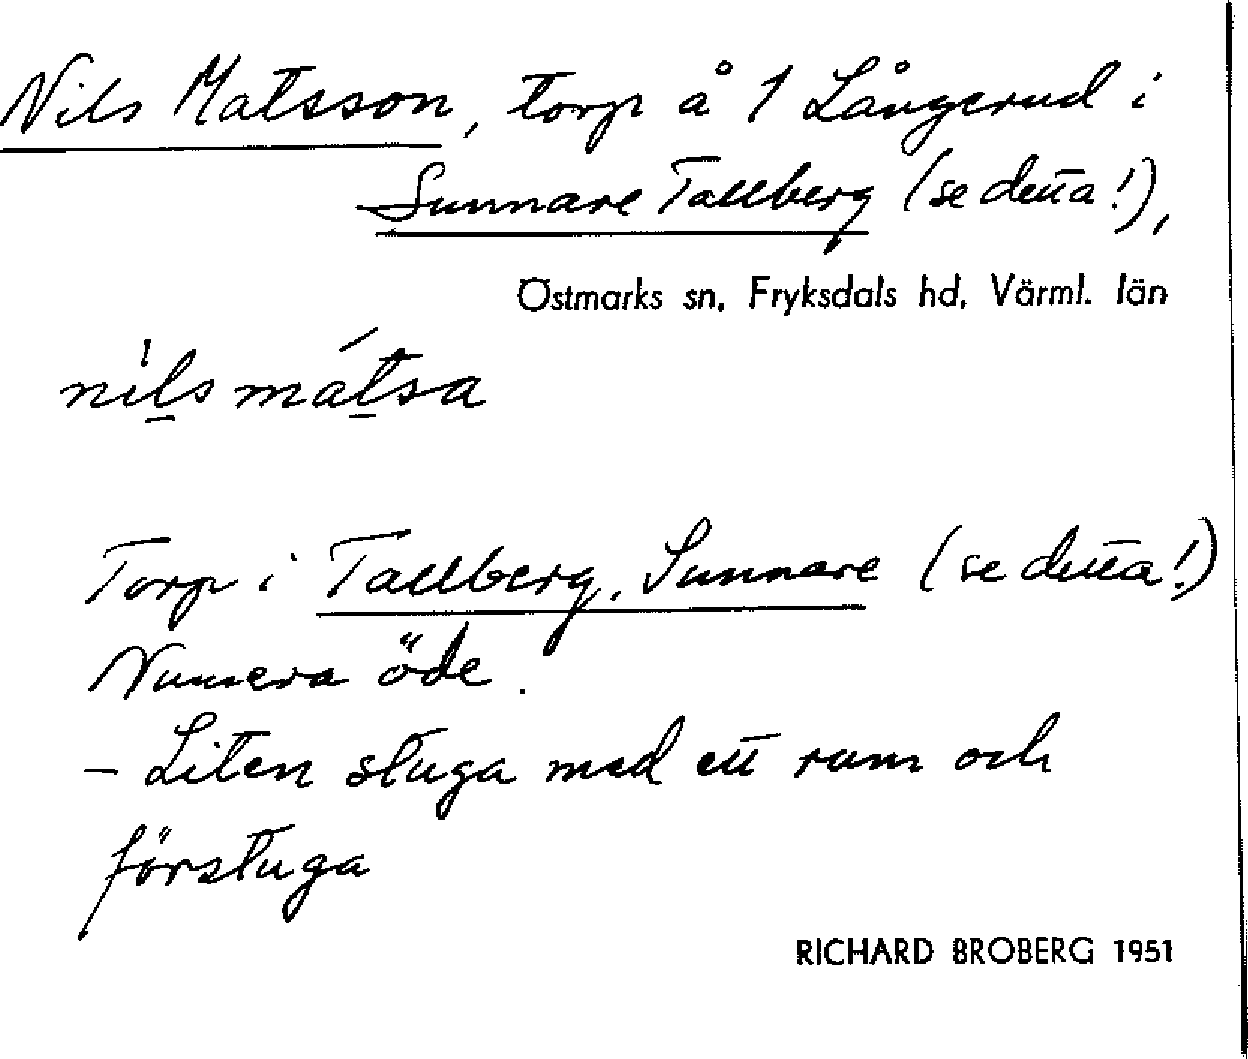 Nils Matsson, torp å 1 Långerud i
Sunnare Tallberg (se detta!),
Östmarks sn, Fryksdals hd, Värml. län
nils mátsa
Torp i Tallberg, Sunnare (se detta!)
Numera öde.
– Liten stuga med ett rum och
förstuga
RICHARD BROBERG 1951